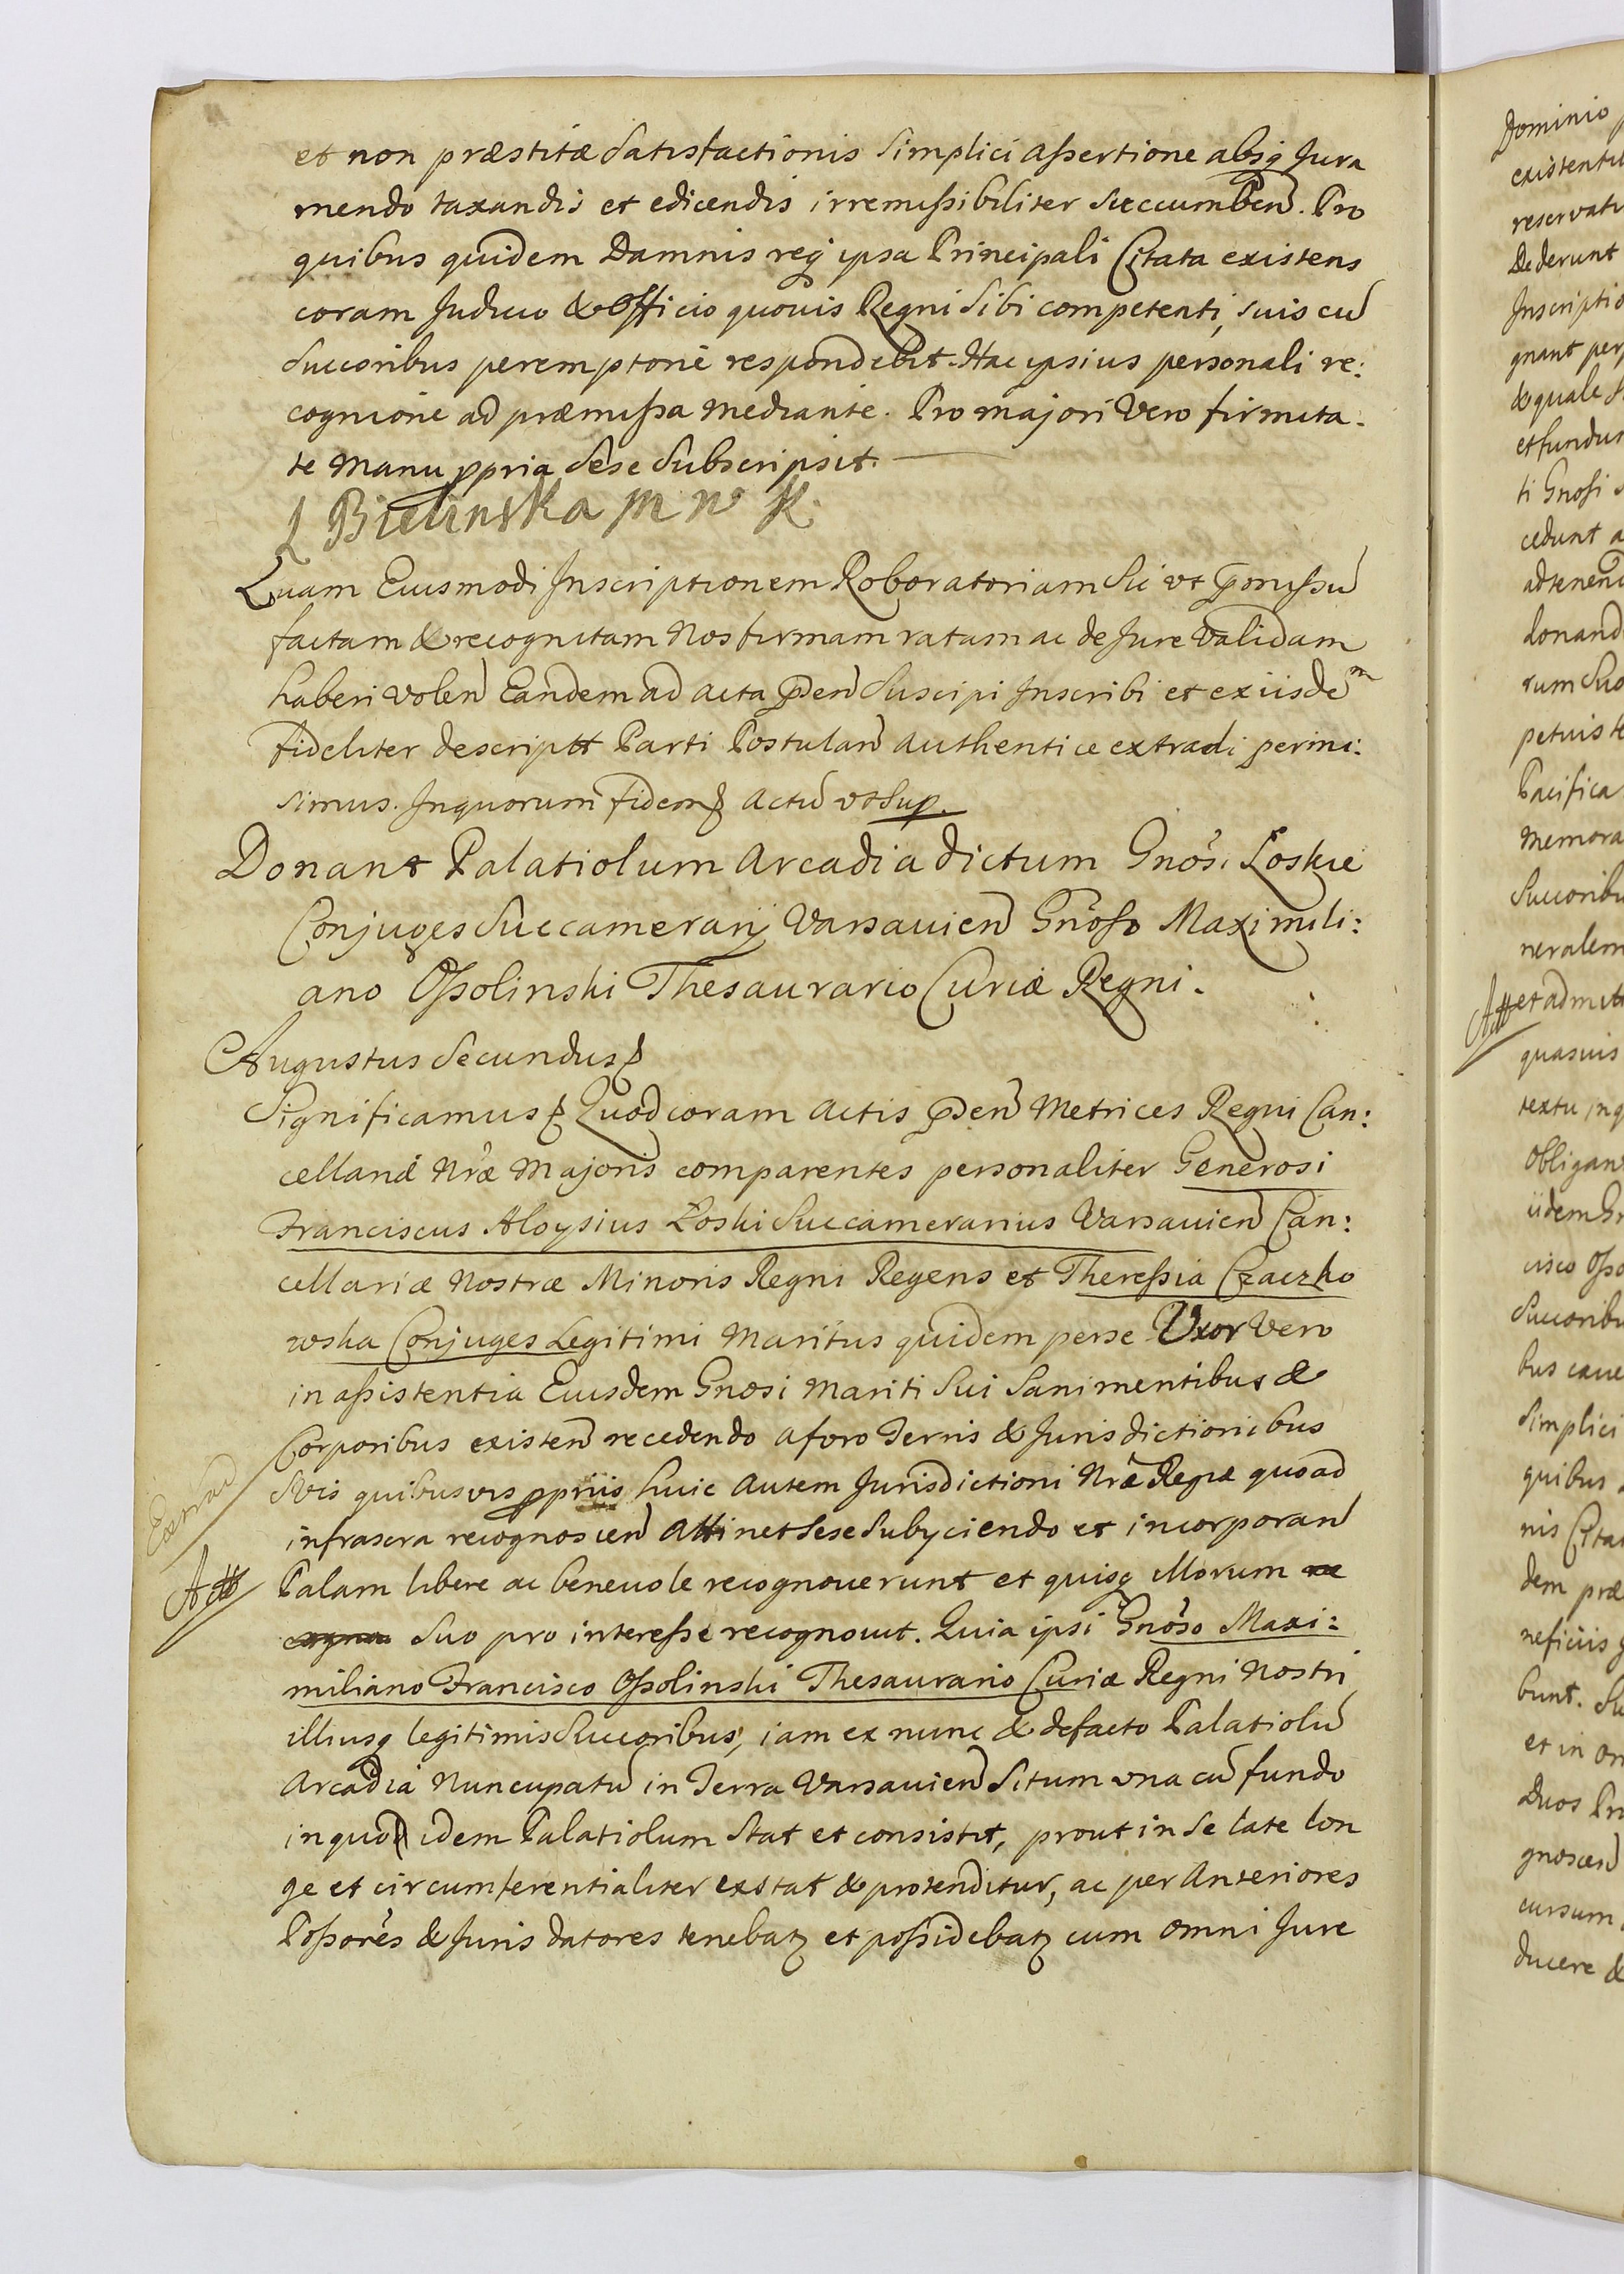 et non præstitæ Satisfactionis Simplici aßertione absq̨ Jura
mendo taxandis et edicendis irremißibiliter Succumben̄. Pro
quibus quidem Damnis req̨ ipsa Principali Citata existens
coram Judicio & Officio quovis Regni Sibi competenti, suis cū
Succoribus peremptorie respondebit. Hac ipsius personali re:
cognicione ad præmißa mediante. Pro majori Vero firmita-
te Manu ppria Sese Subscripsit.
L Bielinska M W K.
Quam Eiusmodi Inscriptionem Roboratoriam Sic vt pmißū
factam & recognitam Nos firmam ratam ac de Jure Validam
haberi volen̄ Eandem ad acta pden̄ Suscipi Inscribi et ex iisdem
fideliter descriptt Parti Postulan̄ authentice extradi permi:
simus. In quorum fidem & Actū vt Sup.
Donant Palatiolum Arcadia dictum Gnōsi Loskie
Conjuges Succamerarij Varsavien̄ Gnōso Maximili:
ano Oßolinski Thesaurario Curiæ Regni.
Augustus Secundus &
Significamus & Quod coram Actis pden̄ Metrices Regni Can:
cellariæ Nræ Majoris comparentes personaliter Generosi
Franciscus Aloysius Łoski Succamerarius Varsavien̄ Can:
cellariæ Nostræ Minoris Regni Regens et Thereßia Czaczko
wska Conjuges Legitimi Maritus quidem per se Uxor Vero
in aßistentia Eiusdem Gnosi Mariti Sui Sani mentibus &
Corporibus existen̄ recedendo a foro Terris & Jurisdictionibus
Suis quibusvis ppriis huic autem Jurisdictioni Nræ Regiæ quoad
infrascra recognoscen̄ attinet Sese Subyciendo et incorporan̄
Palam libere ac benevole recognoverunt et quisq̨ illorum
Suo pro intereße recognovit. Quia ipsi Gnōso Maxi:
miliano Francisco Oßolinski Thesaurario Curiæ Regni Nostri
illiusq̨ legitimis Succoribus, iam ex nunc & de facto Palatiolū
Arcadia Nuncupatū in Terra Varsavien̄ Situm vna cū fundo
in quo idem Palatiolum Stat et consistit, prout in Se late lon
ge et circumferentialiter exstat & protenditur, ac per Anteriores
Poßorēs & Juris datores tenebatʒ et poßidebatʒ cum omni Jure
Extrad
Actt
Dominio
existenti
reservat
Dederunt
Inscriptio
gnant per
& quale
et fundu
ti Gnosi
cedunt a
ad tenen
donand
rum Suo
petuis te
Pacifica
Memora
Succoribu
neralem
et admit
Actt
quasuis
textu inq
Obligan
iidem Gn
cisco Oßo
Succoribu
bus caue
Simplici
quibus
nis Cita
dem præ
neficiis
bunt. Su
et in om
Duos Pr
gnoscen̄
cursum
ducere &